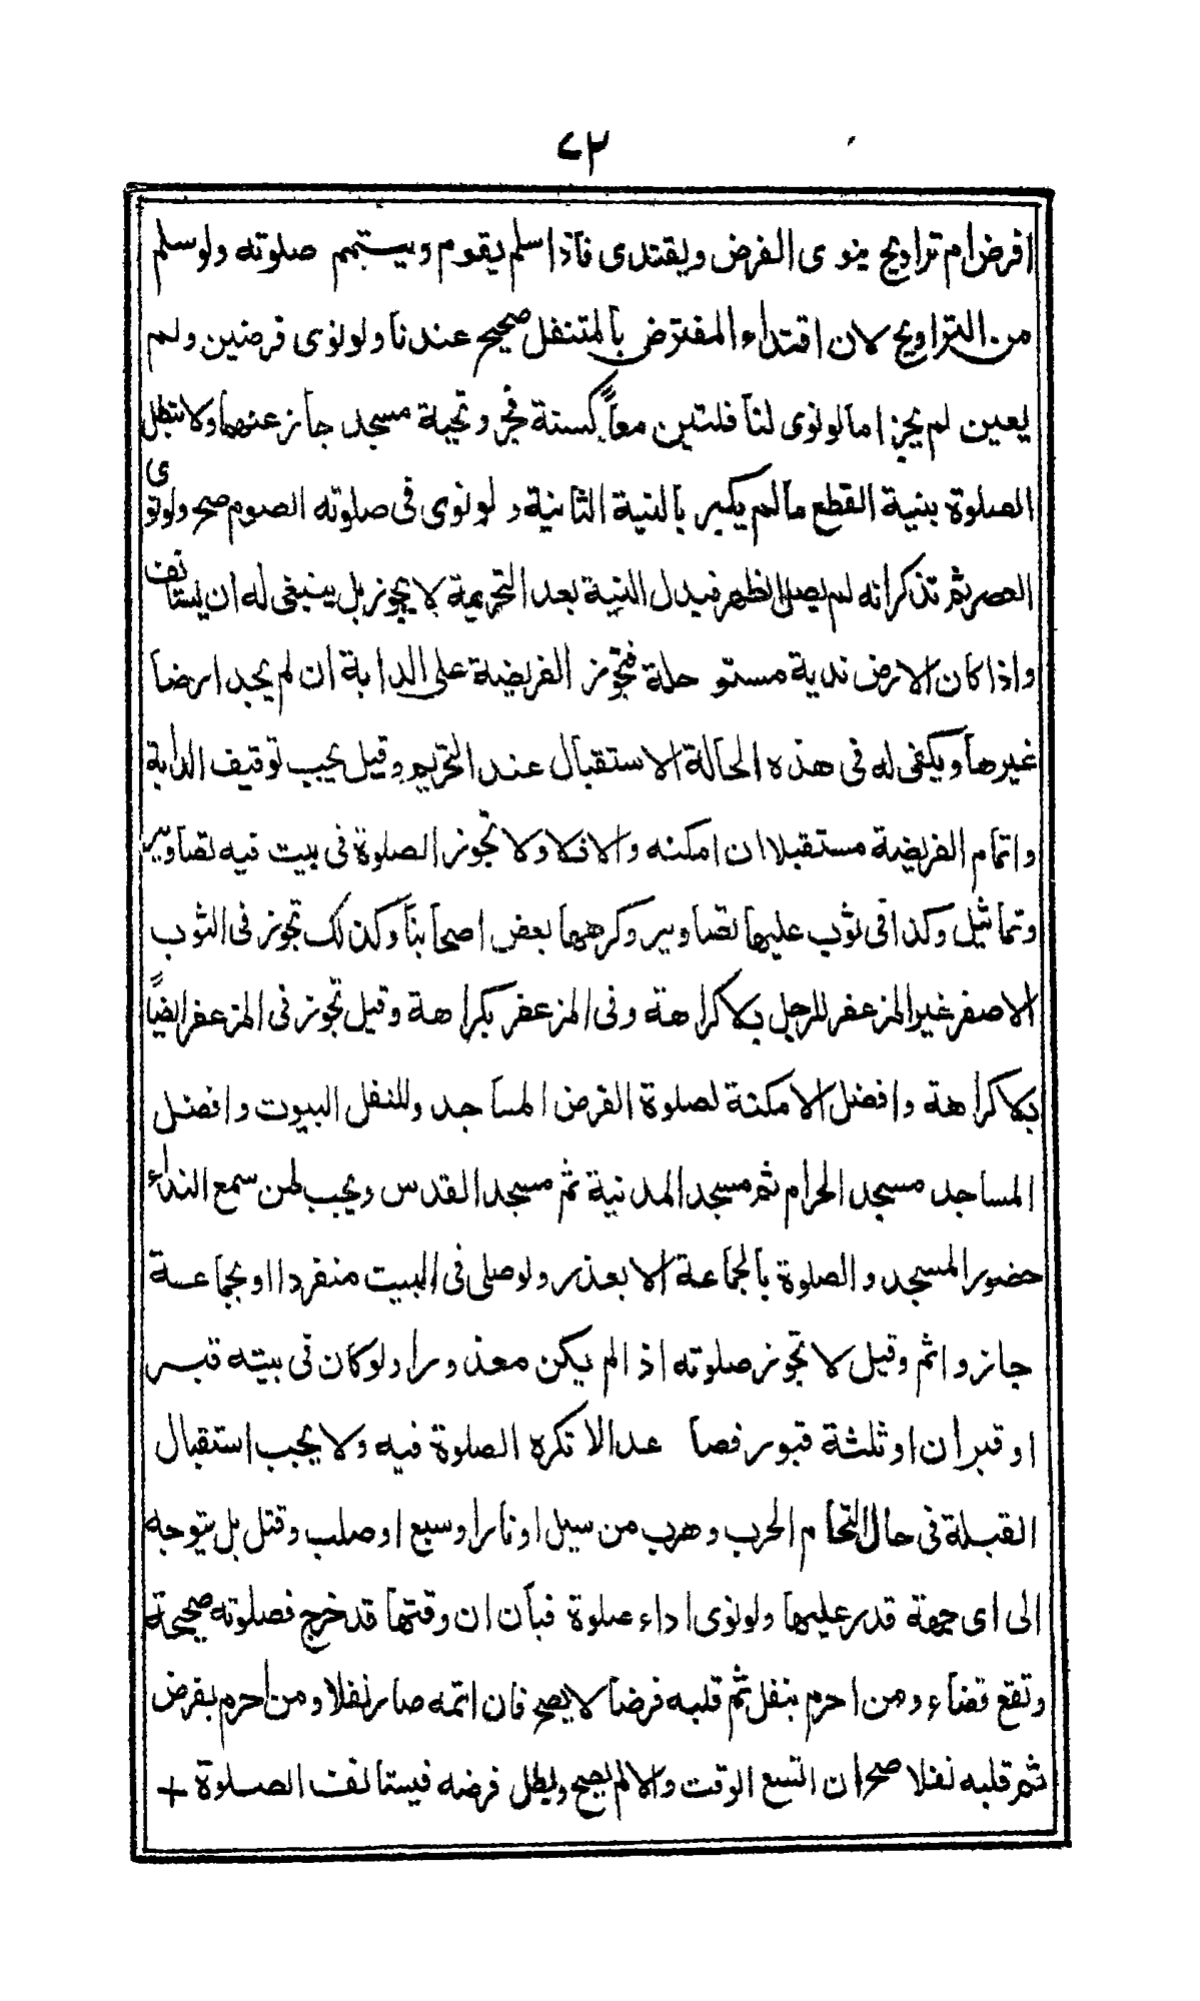 ٧٢
افرض ام تراويح ينوى الفرض ويقتدى فاذا سلم يقوم ويستتم صلوته ولو سلم
من التراويح لان اقتداء المفترض بالمتنفل صحيح عندنا ولو نوى فرضين ولم
يعين لم يجز اما لو نوى لنافلتين معاً كسنة فجر وتحية مسجد جاز عنهما ولا تبطل
الصلوة بنية القطع مالم يكبر بالنية الثانية ولو نوى فى صلوته الصوم صح ولو نوى
العصر ثم تذكر انه لم يصل الظهر فيدل النية بعد التحريمة لا يجوز بل ينبغى له ان يستانف
واذا كان الارض ندية مستو حلة فتجوز الفريضة على الدابة ان لم يجد ارضا
غيرها ويكفى له فى هذه الحالة الاستقبال عند التحريم وقيل يجب توقيف الدابة
واتمام الفريضة مستقبلا ان امكنه والا فلا ولا تجوز الصلوة فى بيت فيه تصاوير
وتماثيل وكذا فى ثوب عليها تصاوير وكرهها بعض اصحابنا وكذلك تجوز فى الثوب
الاصفر غير المزعفر للرجل بلا كراهة وفى المزعفر بكراهة وقيل تجوز فى المزعفر ايضًا
بلا كراهة وافضل الامكنة لصلوة الفرض المساجد وللنفل البيوت وافضل
المساجد مسجد الحرام ثم مسجد المدنية ثم مسجد القدس ويجب لمن سمع النداء
حضور المسجد والصلوة بالجماعة الا بعذر ولو صلى فى البيت منفردا او بجماعة
جاز واثم وقيل لا تجوز صلوته اذا لم يكن معذورا ولو كان فى بيته قبر
او قبران او ثلثة قبور فصا عدا لا تكره الصلوة فيه ولا يجب استقبال
القبلة فى حال التحام الحرب وهرب من سيل او نار او سبع او صلب وقتل بل يتوجه
الى اى جهة قدر عليها ولو نوى اداء صلوة فبان ان وقتها قد خرج فصلوته صحيحة
وتقع قضاء ومن احرم بنفل ثم قلبه فرضا لا يصح فان اتمه صار نفلا ومن احرم بفرض
ثم قلبه نفلا صح ان اتسع الوقت والا لم يصح وبطل فرضه فيستانف الصلوة +